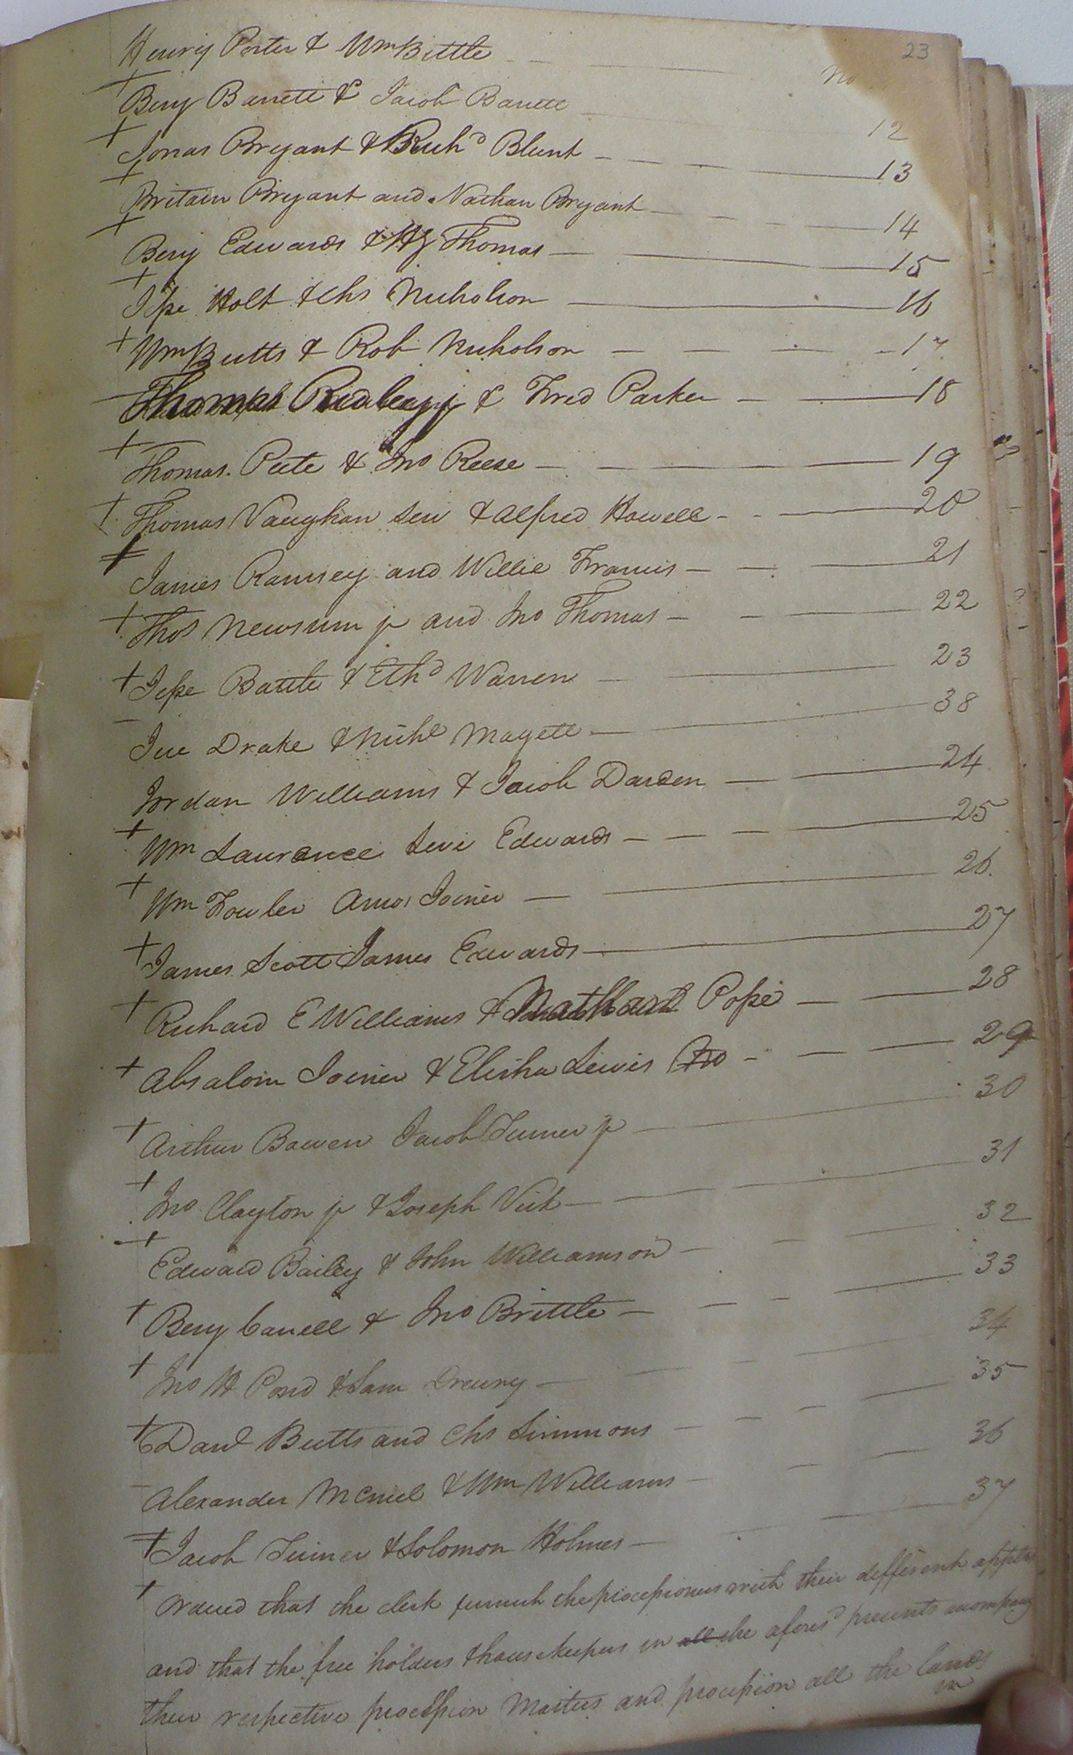 23
Henry Porter & Wm Bittle
No
Benj Barrett & Jacob Barrett
12
Jonas Bryant & Richd Blunt 13
Britain Bryant and Nathan Bryant 14
Benj Edwards & Thomas 15
Jesse Holt & Chs Nicholson 16
Wm Butts & Rob Nicholson 17
Thomas Ridley jr & Fred Parker 18
Thomas Pete & Jno Reese 19
Thomas Vaughan Sen & Alfred Howell 20
James Ramsey and Willie Francis 21
Thos Newsum jr and Jno Thomas 22
Jesse Battle & Ethd Warren 23
Drake & Nichs Magett 38
Jordan Williams & Jacob Darden 24
Wm Laurance Levi Edwards 25
Wm Fowler Amos Joiner 26
James Scott James Edwards 27
Richard E Williams & Nathan Pope 28
Absalom Joiner & Elisha Lewis 29
Arthur Bowen Jacob Turner jr 30
Jno Clayton jr & Joseph Vick 31
Edward Bailey & John Williamson 32
Benj Carrell & Jno Brittle 33
Jno H Pond & Sam Drewry 34
Danl Butts and Chs Simmons 35
Alexander McNeel & Wm Williams 36
Jacob Turner & Solomon Holmes 37
Ordered that the clerk furnish the processioners with their different
and that the free holders & house keepers in all the aforesd precincts accompany
their respective procession Masters and procession all the lands
in